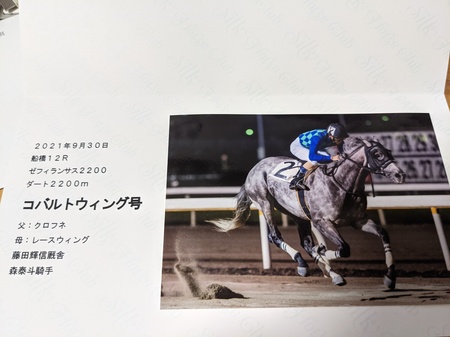 2021年9月30日
船橋12R
ゼフィランサス2200
ダート2200m
コバルトウィング号
父：クロフネ
母：レースウィング
藤田輝信厩舎
森泰斗騎手